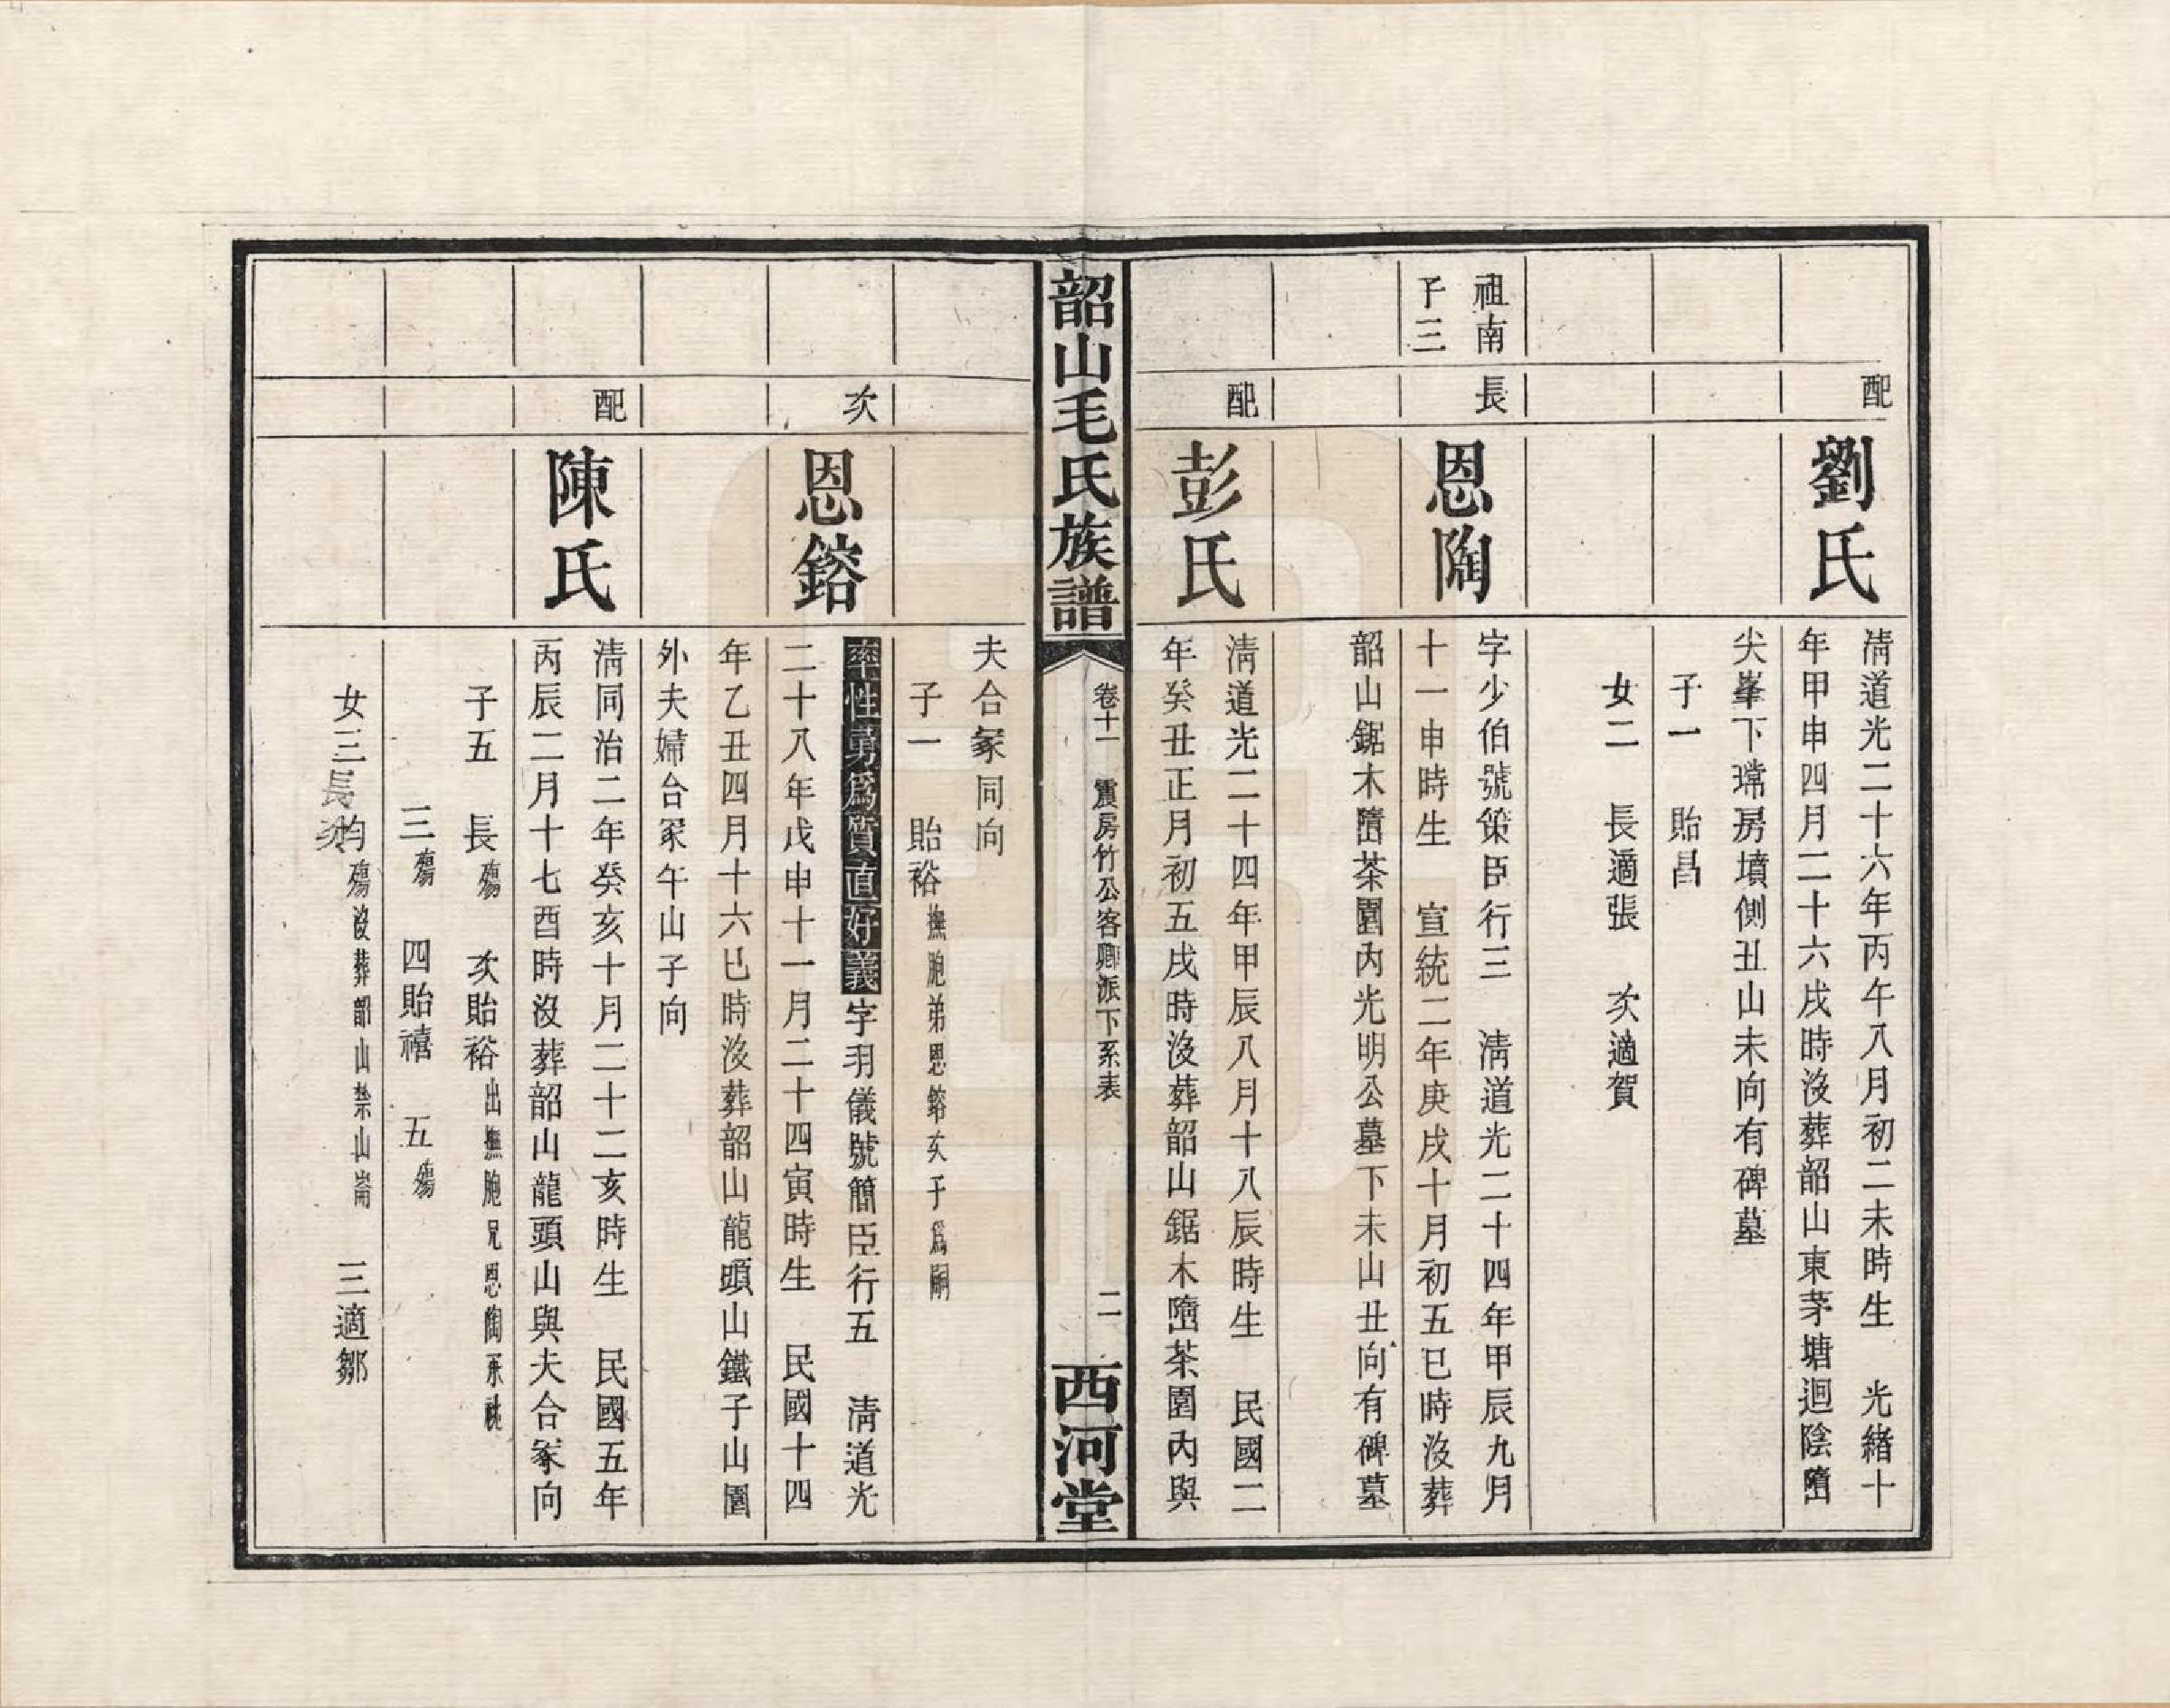 配
劉氏
清道光二十六年丙午八月初二未時生　光緒十
年甲申四月二十六戌時沒葬韶山東茅塘迴陰𡼏
尖峯下璋房墳側丑山未向有碑墓
子一　貽昌
女二　長適張　次適賀
祖南
子三
長
恩陶
字少伯號策臣行三　清道光二十四年甲辰九月
十一申時生　宣統二年庚戌十月初五巳時沒葬
韶山鋸木𡼏茶園內光明公墓下未山丑向有碑墓
配
彭氏
清道光二十四年甲辰八月十八辰時生　民國二
年癸丑正月初五戌時沒葬韶山鋸木𡼏茶園內與
韶山毛氏族譜
卷十一　震房竹公客卿派下系表
二
西河堂
夫合冢同向
子一　貽裕撫胞弟恩鎔次子爲嗣
次
恩鎔
率性勇爲質直好義字羽儀號簡臣行五　清道光
二十八年戊申十一月二十四寅時生　民國十四
年乙丑四月十六巳時沒葬韶山龍頭山鐵子山園
外夫婦合冢午山子向
配
陳氏
清同治二年癸亥十月二十二亥時生　民國五年
丙辰二月十七酉時沒葬韶山龍頭山與夫合冢向
子五　長殤　次貽裕出撫胞兄恩陶承祧
三殤　四貽禧　五殤
女三長次均殤沒葬韶山禁山崙　三適鄒